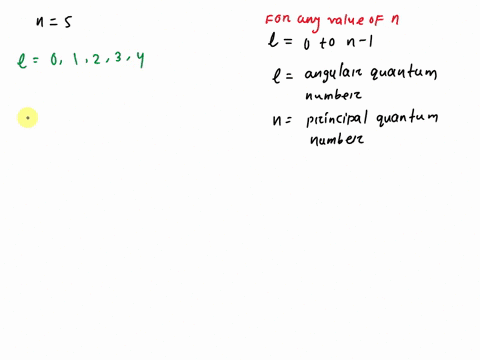 n = 5
l = 0, 1, 2, 3, 4
For any value of n
l = 0 to n-1
l = angular quantum
number
n = principal quantum
number